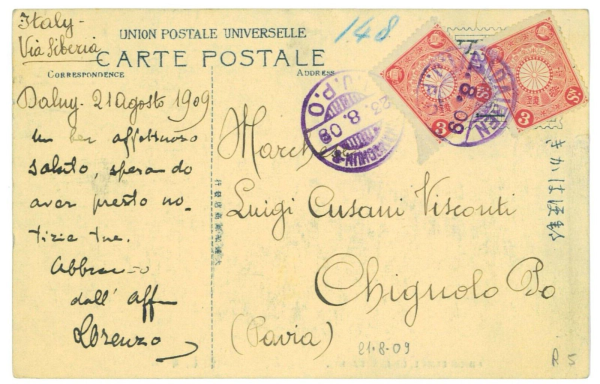 Italy-
Via Siberia
UNION POSTALE UNIVERSELLE
CARTE POSTALE
CORRESPONDENCE
ADDRESS
148
Dalny- 21 agosto 1909
un ben affettuoso
saluto, sperando
aver presto no-
tizie tue.
Abbraccio
dall' Aff
Lorenzo
March
Luigi Cusani Visconti
Chignolo Po
(Pavia)
21-8-09
R 5
I.J.P.O
23.8.09
3
3
きかはほ